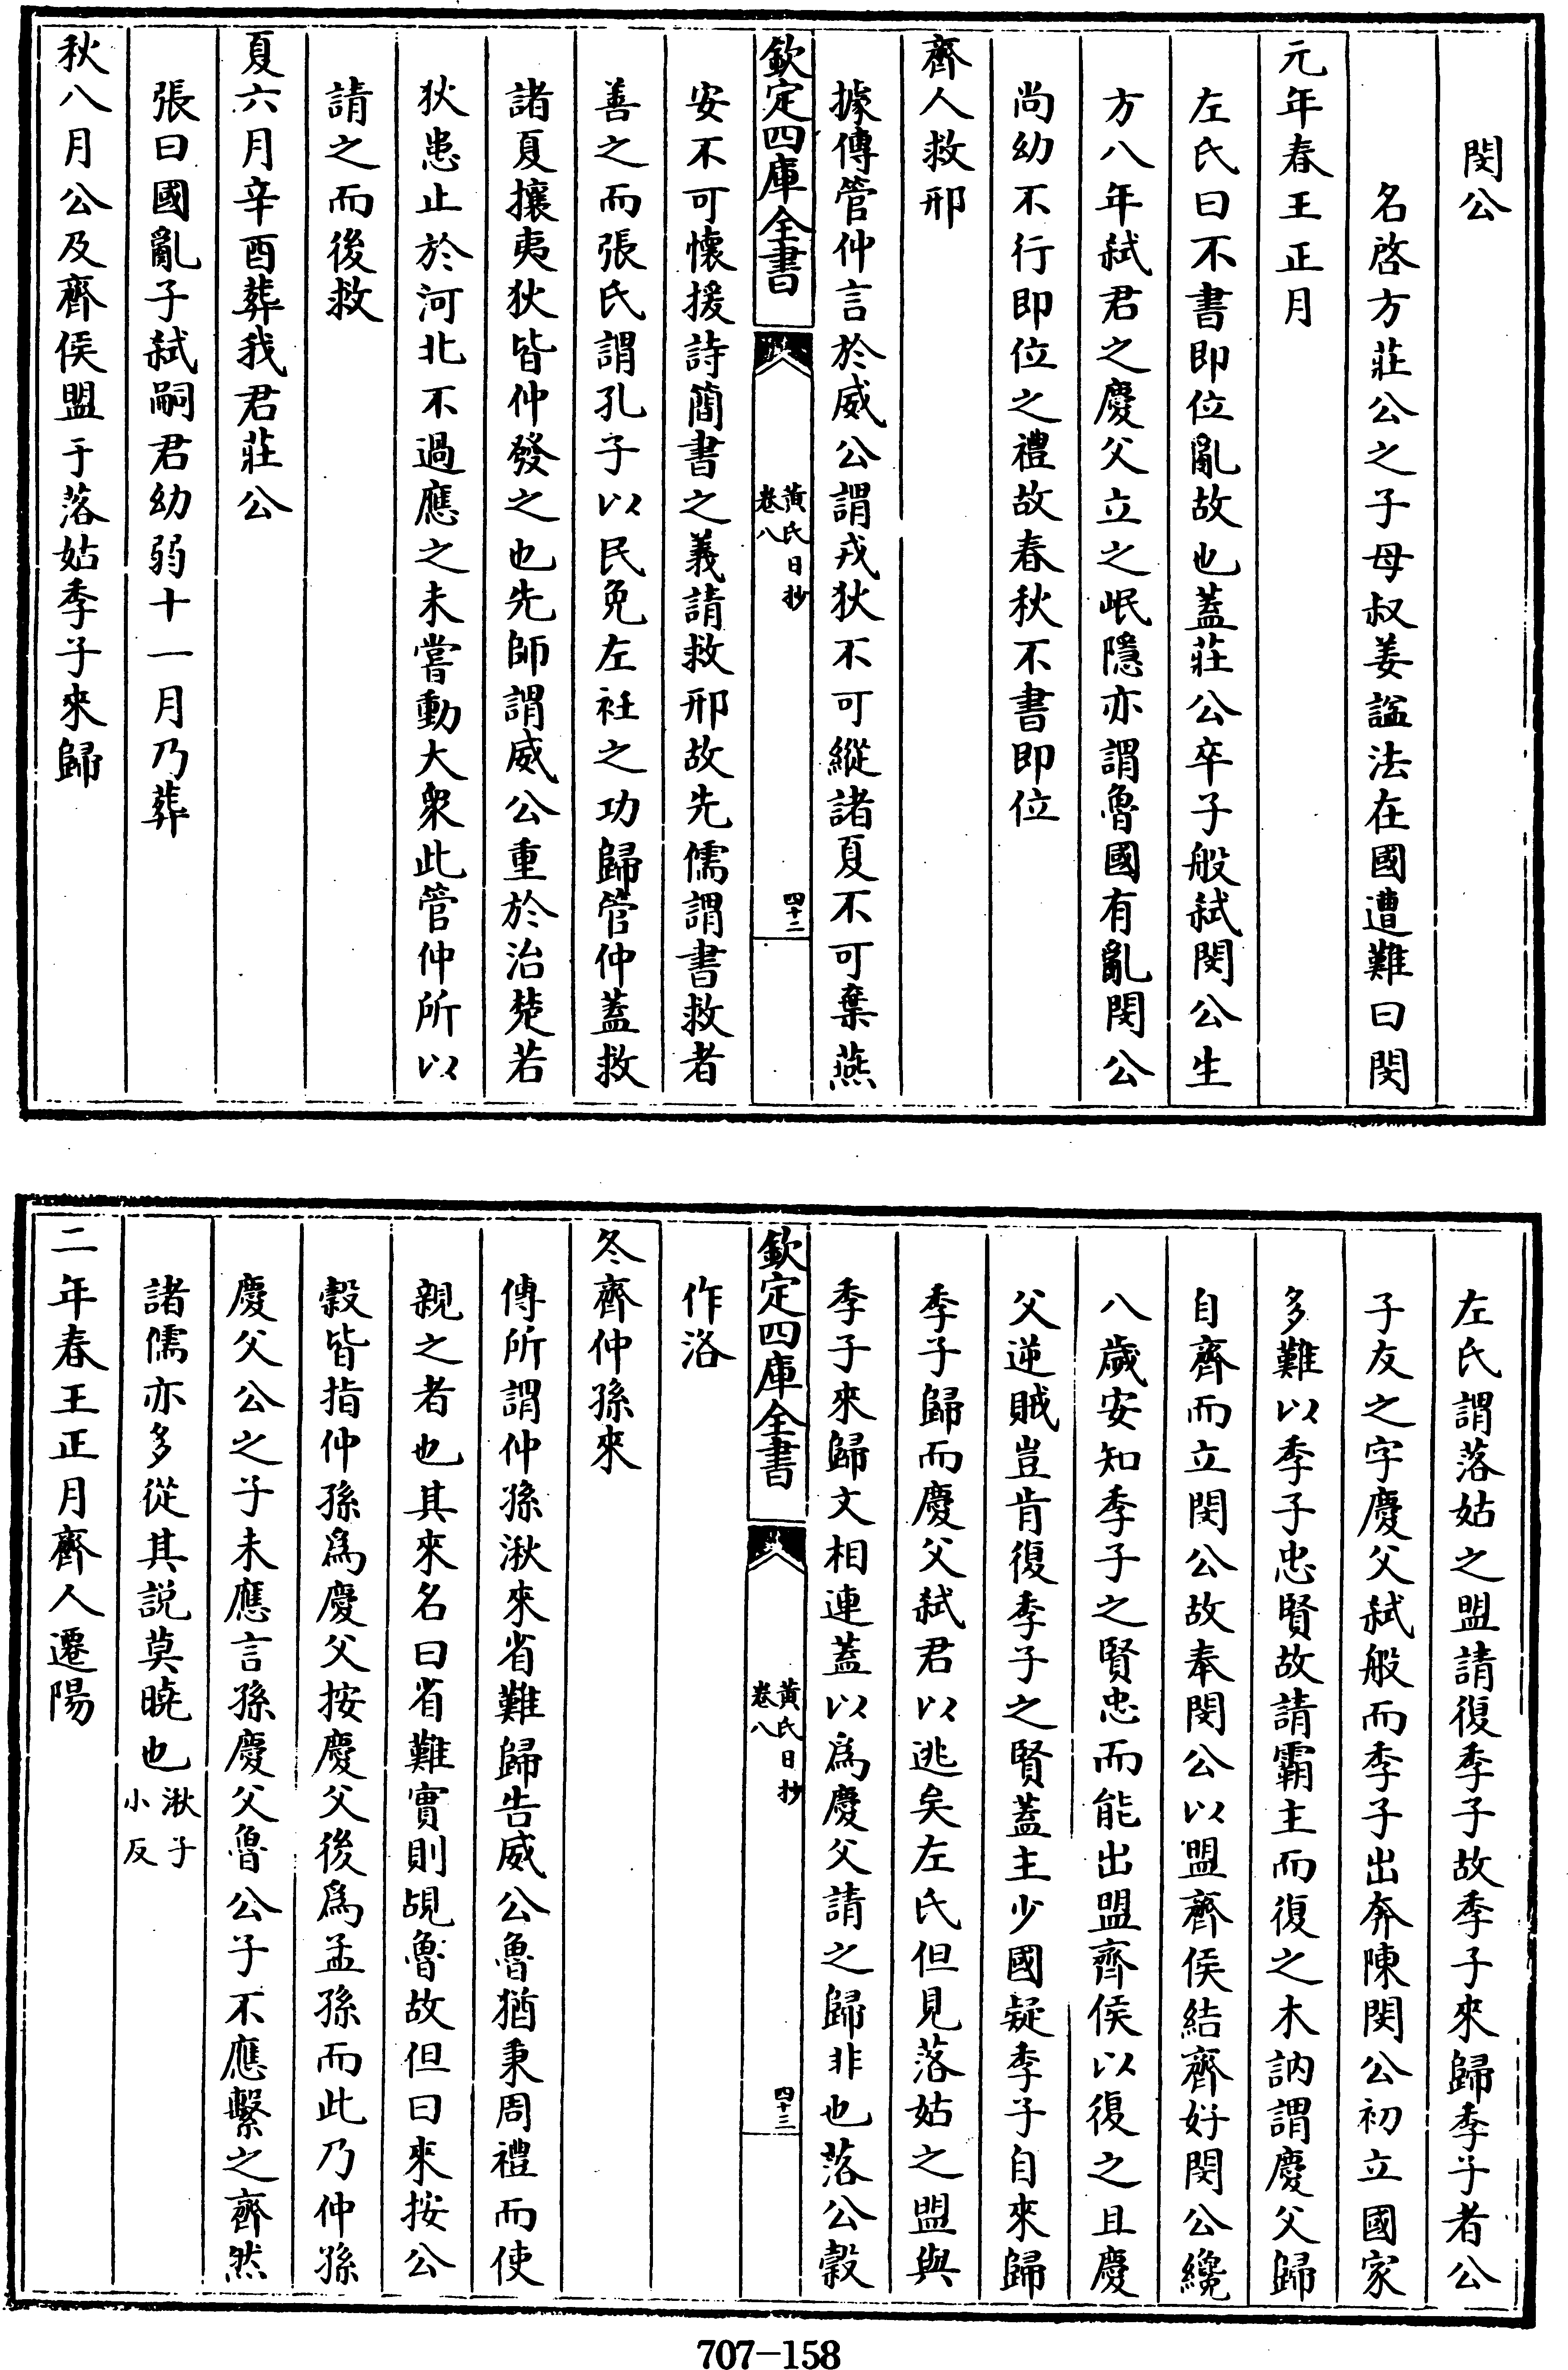 閔公
名啓方莊公之子母叔姜諡法在國遭難曰閔
元年春王正月
左氏曰不書即位亂故也蓋莊公卒子般弑閔公生
方八年弑君之慶父立之岷隱亦謂魯國有亂閔公
尚幼不行即位之禮故春秋不書即位
齊人救邢
據傳管仲言於威公謂戎狄不可縱諸夏不可棄燕
欽定四庫全書
黃氏日抄
卷八
四十二
安不可懷援詩簡書之義請救邢故先儒謂書救者
善之而張氏謂孔子以民免左衽之功歸管仲蓋救
諸夏攘夷狄皆仲發之也先師謂威公重於治楚若
狄患止於河北不過應之未嘗動大衆此管仲所以
請之而後救
夏六月辛酉葬我君莊公
張曰國亂子弑嗣君幼弱十一月乃葬
秋八月公及齊侯盟于落姑季子來歸
左氏謂落姑之盟請復季子故季子來歸季子者公
子友之字慶父弑般而季子出奔陳閔公初立國家
多難以季子忠賢故請霸主而復之木訥謂慶父歸
自齊而立閔公故奉閔公以盟齊侯結齊好閔公纔
八歲安知季子之賢忠而能出盟齊侯以復之且慶
父逆賊豈肯復季子之賢蓋主少國疑季子自來歸
季子歸而慶父弑君以逃矣左氏但見落姑之盟與
季子來歸文相連蓋以爲慶父請之歸非也落公榖
欽定四庫全書
黃氏日抄
卷八
四十三
作洛
冬齊仲孫來
傳所謂仲孫湫來省難歸告威公魯猶秉周禮而使
親之者也其來名曰省難實則覘魯故但曰來按公
榖皆指仲孫爲慶父按慶父後爲孟孫而此乃仲孫
慶父公之子未應言孫慶父魯公子不應繫之齊然
諸儒亦多從其說莫曉也湫子
小反
二年春王正月齊人遷陽
707-158